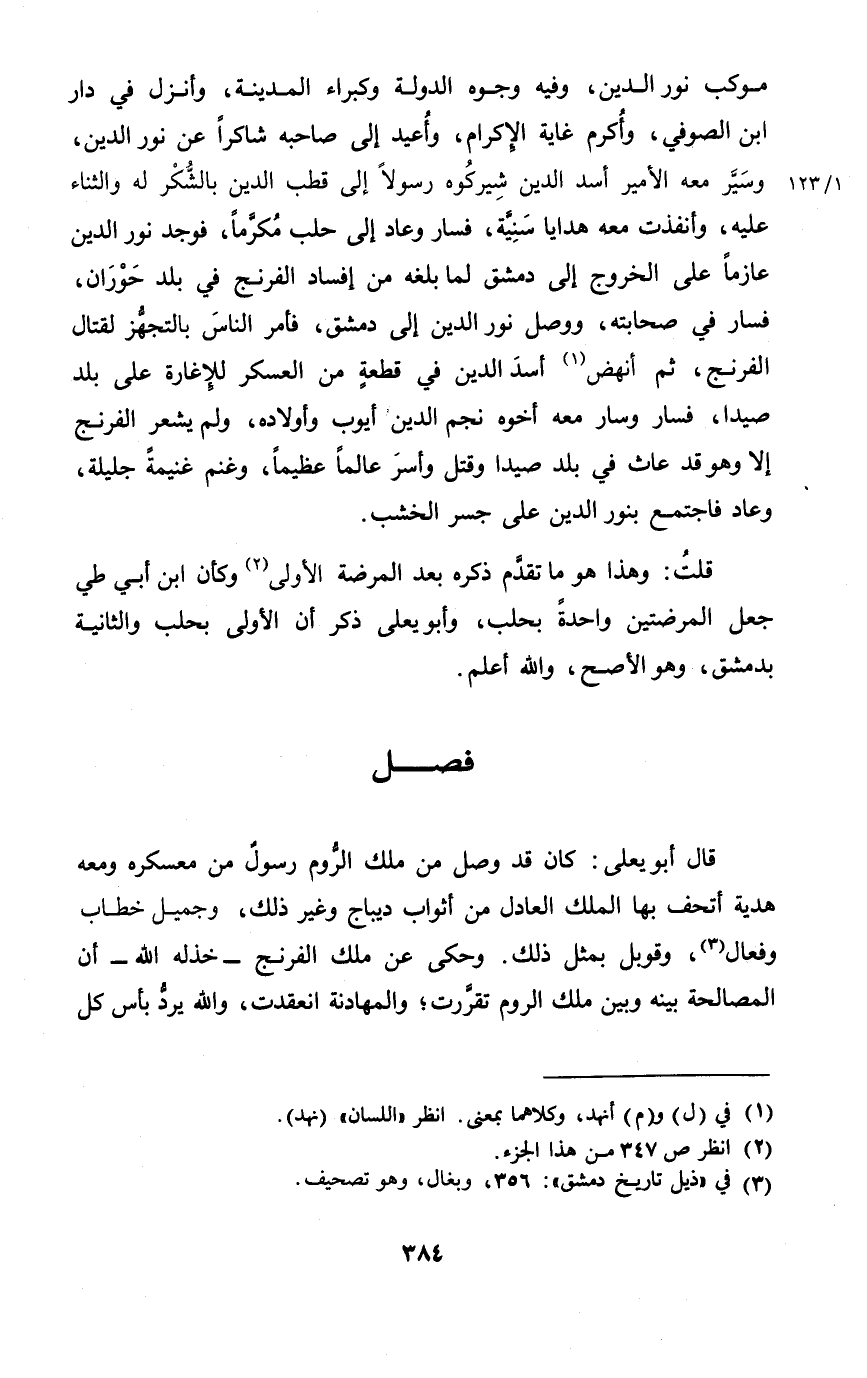 موكب نور الدين، وفيه وجوه الدولة وكبراء المدينة، وأنزل في دار
ابن الصوفي، وأُكرم غاية الإكرام، وأُعيد إلى صاحبه شاكراً عن نور الدين،
١٢٣/١ وسَيَّر معه الأمير أسد الدين شِيركُوه رسولاً إلى قطب الدين بالشُّكْر له والثناء
عليه، وأنفذت معه هدايا سَنِيَّة، فسار وعاد إلى حلب مُكرَّماً، فوجد نور الدين
عازماً على الخروج إلى دمشق لما بلغه من إفساد الفرنج في بلد حَوْرَان،
فسار في صحابته، ووصل نور الدين إلى دمشق، فأمر الناسَ بالتجهُّز لقتال
الفرنج، ثم أنهض(١) أسدَ الدين في قطعةٍ من العسكر للإغارة على بلد
صيدا، فسار وسار معه أخوه نجم الدين أيوب وأولاده، ولم يشعر الفرنج
إلا وهو قد عاث في بلد صيدا وقتل وأسرَ عالماً عظيماً، وغنم غنيمةً جليلة،
وعاد فاجتمع بنور الدين على جسر الخشب.
قلتُ: وهذا هو ما تقدَّم ذكره بعد المرضة الأولى(٢) وكأن ابن أبي طي
جعل المرضتين واحدةً بحلب، وأبو يعلى ذكر أن الأولى بحلب والثانية
بدمشق، وهو الأصح، والله أعلم.
فصل
قال أبو يعلى: كان قد وصل من ملك الرُّوم رسولٌ من معسكره ومعه
هدية أتحف بها الملك العادل من أثواب ديباج وغير ذلك، وجميل خطاب
وفعال(٣)، وقوبل بمثل ذلك. وحكى عن ملك الفرنج – خذله الله – أن
المصالحة بينه وبين ملك الروم تقرَّرت؛ والمهادنة انعقدت، والله يردُّ بأس كل
(١) في (ل) و(م) أنهد، وكلاهما بمعنى. انظر «اللسان» (نهد).
(٢) انظر ص ٣٤٧ من هذا الجزء.
(٣) في «ذيل تاريخ دمشق»: ٣٥٦، وبغال، وهو تصحيف.
٣٨٤